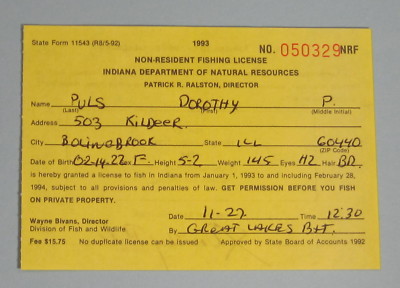 State Form 11543 (R8/5-92) 1993
NO. 050329 NRF
NON-RESIDENT FISHING LICENSE
INDIANA DEPARTMENT OF NATURAL RESOURCES
PATRICK R. RALSTON, DIRECTOR
Name PULS DOROTHY P.
(Last) (First) (Middle Initial)
Address 503 KILDEER
City BOLINGBROOK State ILL 60440
(ZIP Code)
Date of Birth 02-14-22 Sex F Height 5-2 Weight 145 Eyes HZ Hair BR.
is hereby granted a license to fish in Indiana from January 1, 1993 to and including February 28,
1994, subject to all provisions and penalties of law. GET PERMISSION BEFORE YOU FISH
ON PRIVATE PROPERTY.
Date 11-27 Time 12:30
Wayne Bivans, Director
Division of Fish and Wildlife By GREAT LAKES B+T.
Fee $15.75 No duplicate license can be issued Approved by State Board of Accounts 1992